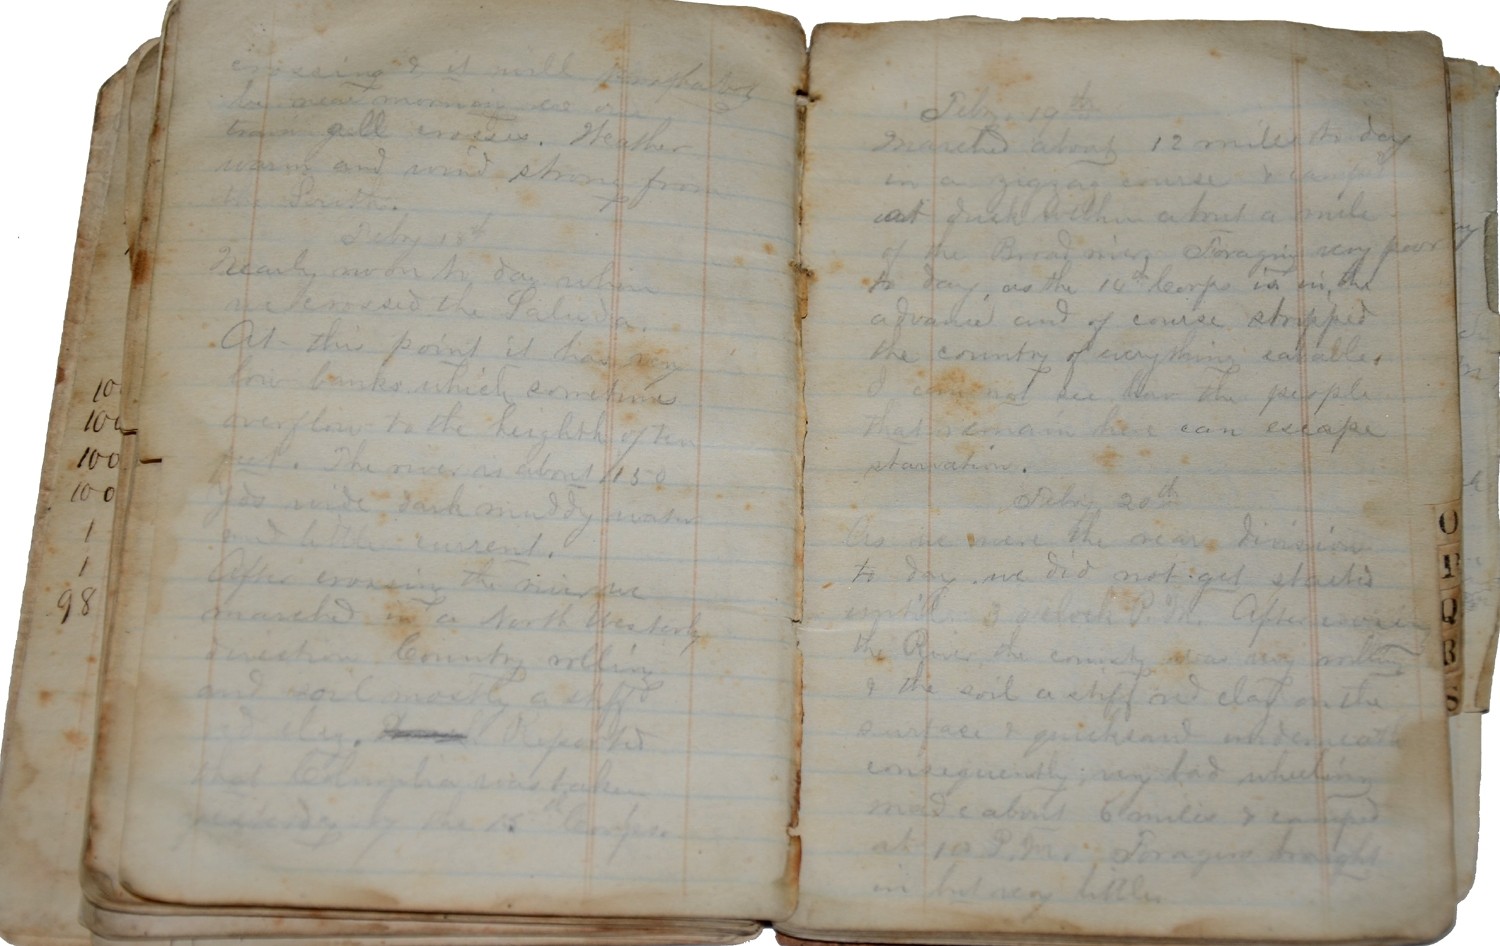 crossing & it will
be near morning ere our
train gill crosses. Weather
warm and wind strong from
the South.
Feby 18th
Nearly noon to day when
we crossed the Saluda.
At this point it has very
low banks which sometimes
overflow to the heighth of ten
feet. The river is about 150
yds wide dark muddy water
and little current.
After crossing the river we
marched in a North Westerly
direction Country rolling
and soil mostly a stiff
red clay. Reported
that Columbia was taken
yesterday by the 15th Corps.
100
100
100
1
1
98
Feby. 19th
Marched about 12 miles to day
in a zigzag course & camped
at dusk within about a mile
of the Broad river. Foraging very poor
to day, as the 14th Corps is in the
advance and of course stripped
the country of everything eatable.
I can not see how the people
that remain here can escape
starvation.
Feby 20th
As we were the rear division
to day we did not get started
until 3 o'clock P.M. After crossing
the River the country was very rolling
& the soil a stiff red clay on the
surface & quicksand underneath
consequently very bad wheeling
made about 6 miles & camped
at 10 P.M. Foragers brought
in but very little.
O
P
Q
R
S